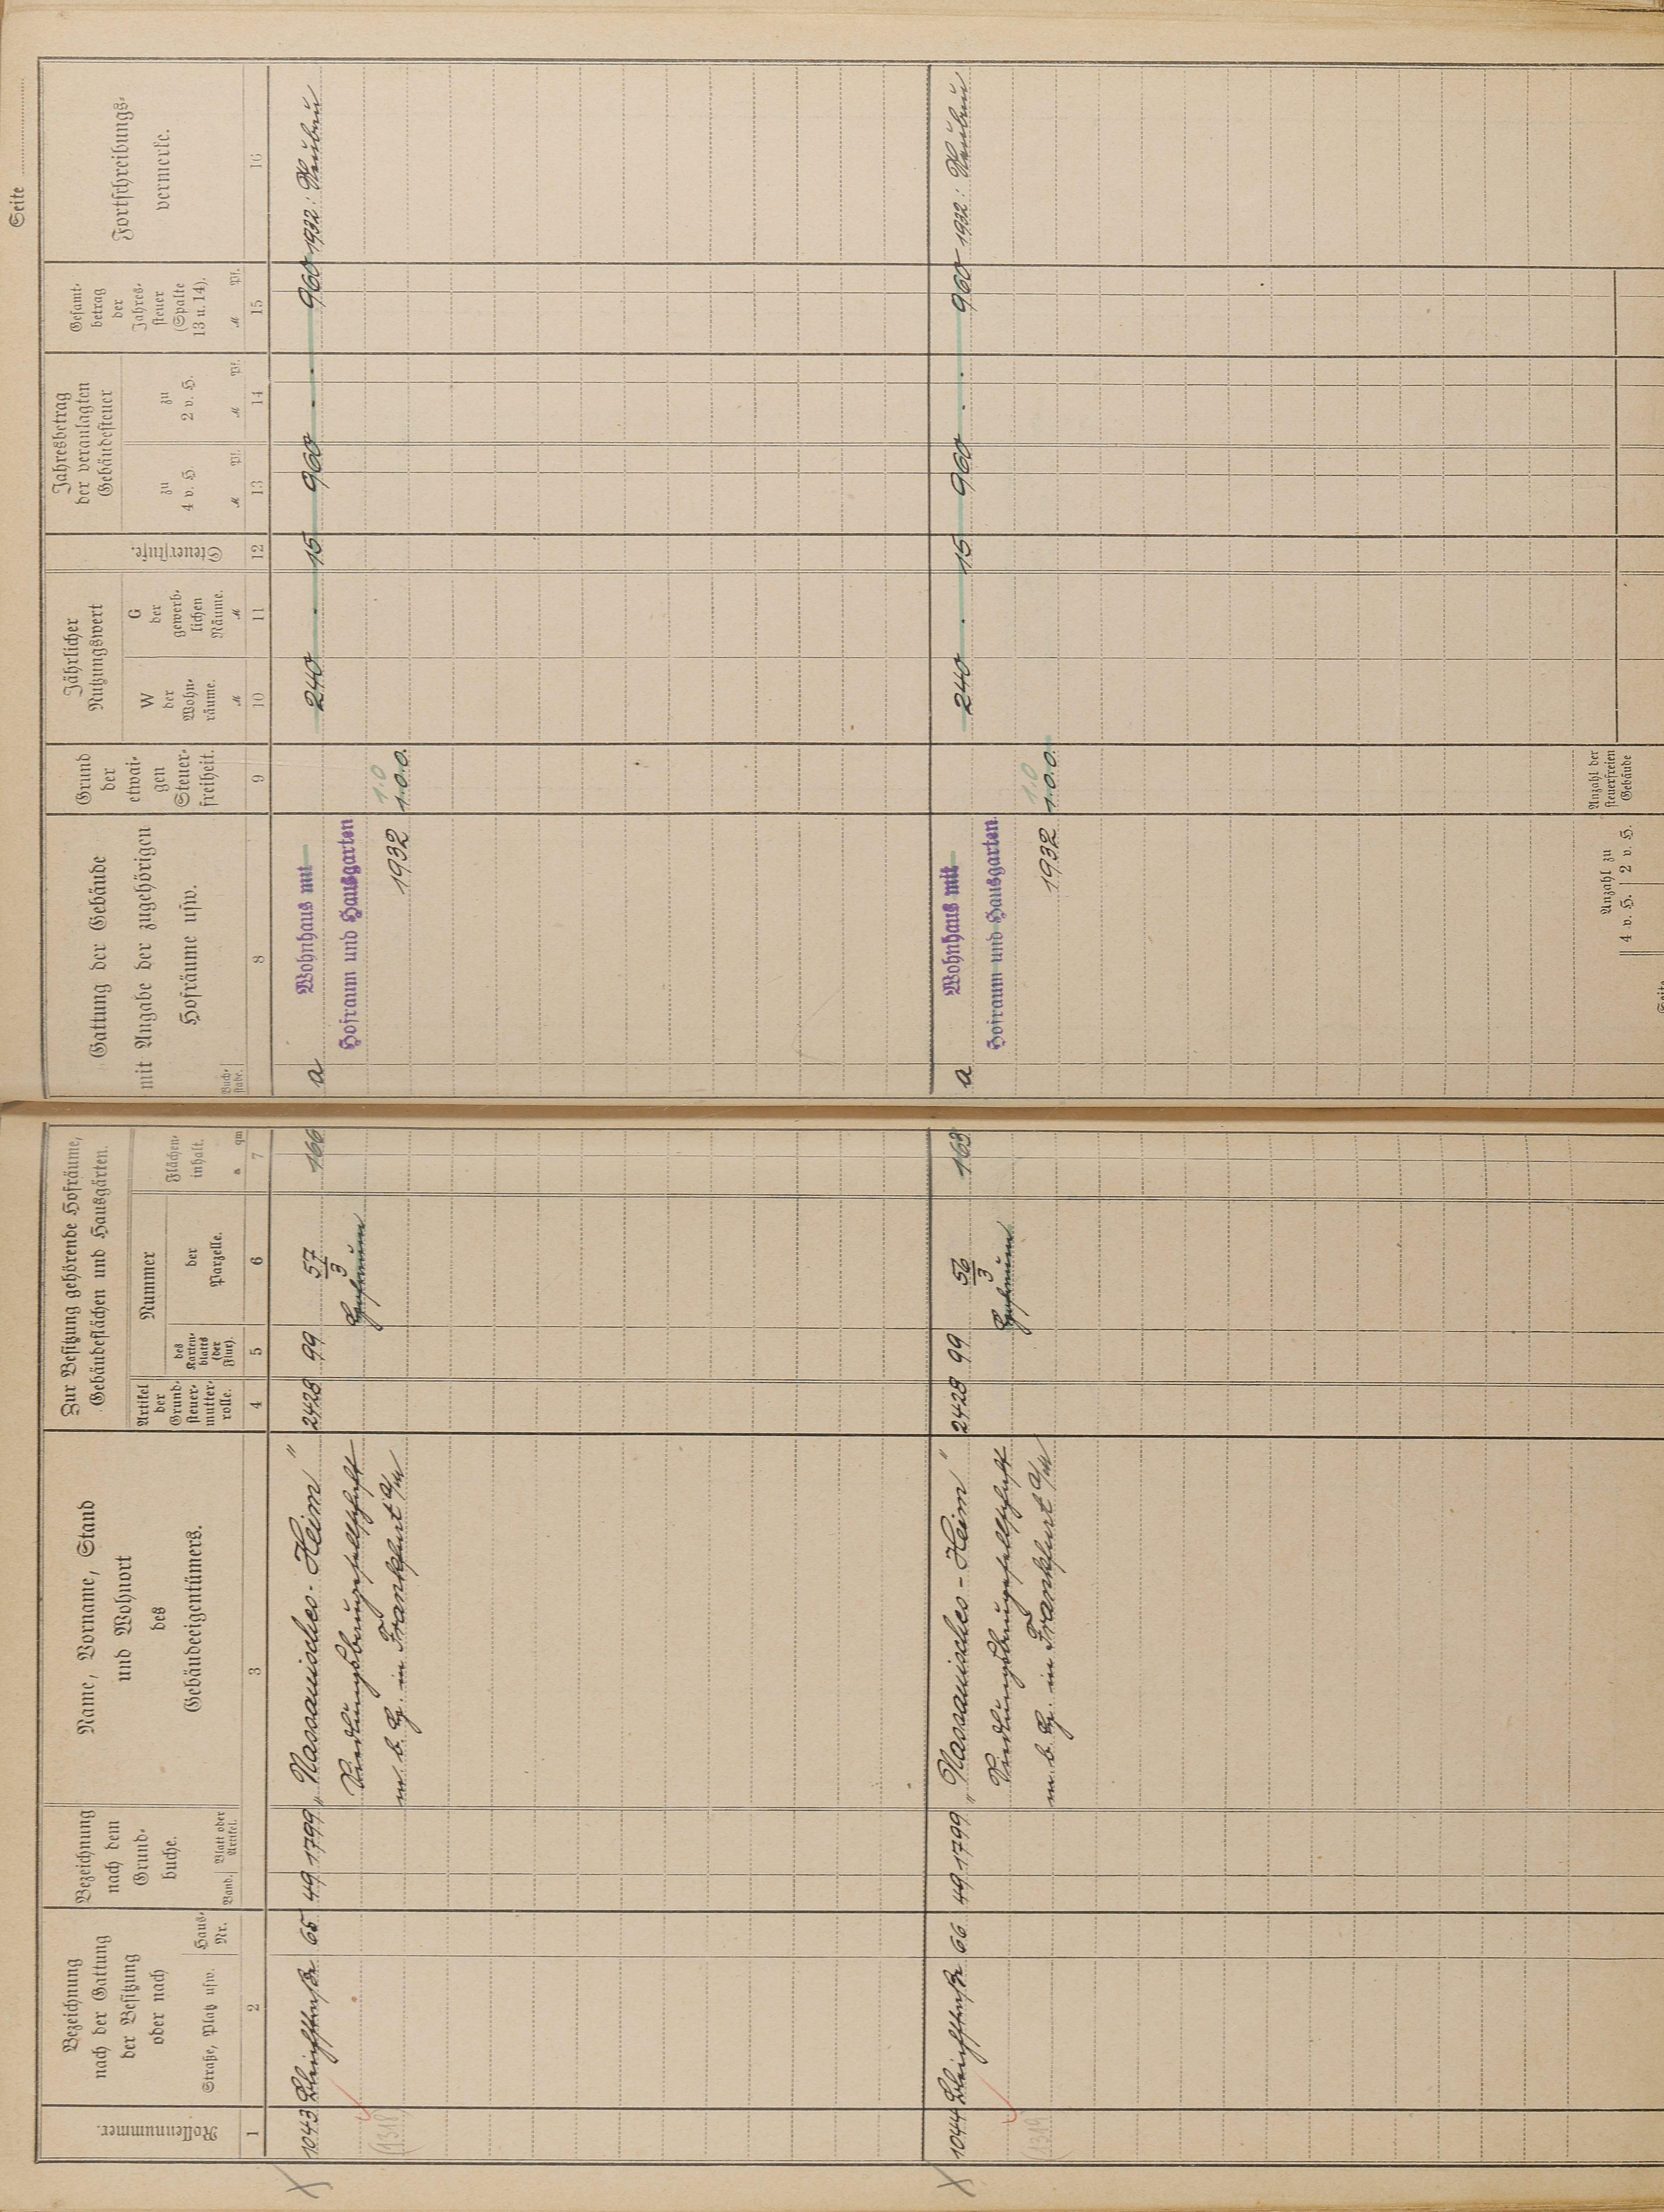 Seite
Rollennummer.
Bezeichnung
nach der Gattung
der Besitzung
oder nach
Straße, Platz usw.
Haus-
Nr.
Bezeichnung
nach dem
Grund-
buche.
Band.
Blatt oder
Artikel.
Name, Vorname, Stand
und Wohnort
des
Gebäudeeigentümers.
Zur Besitzung gehörende Hofräume,
Gebäudeflächen und Hausgärten.
Artikel
der
Grund-
steuer-
mutter-
rolle.
Nummer
des
Karten-
blatts
(der
Flur).
der
Parzelle.
Flächen-
inhalt.
a qm
1 2 3 4 5 6 7
Gattung der Gebäude
mit Angabe der zugehörigen
Hofräume usw.
Buch-
stabe.
Grund
der
etwai-
gen
Steuer-
freiheit.
Jährlicher
Nutzungswert
W
der
Wohn-
räume.
M
G
der
gewerb-
lichen
Räume.
M
Steuerstufe.
Jahresbetrag
der veranlagten
Gebäudesteuer
zu
4 v. H.
M Pf.
zu
2 v. H.
M Pf.
Gesamt-
betrag
der
Jahres-
steuer
(Spalte
13 u. 14).
M Pf.
Fortschreibungs-
vermerke.
8 9 10 11 12 13 14 15 16
1043 Bleichstraße 65 49 1799 „Nassauisches-Heim" 2428 99 57/3 166
Siedlungsbaugesellschaft Hofraum
(1318) m. b. H. in Frankfurt a/M
a Wohnhaus mit 240 . 15 960 . . 960 1932: Neubau
Hofraum und Hausgarten
1.0
1932 1.0.0.
1044 Bleichstraße 66 49 1799 „Nassauisches-Heim" 2428 99 56/3 163
Siedlungsbaugesellschaft Hofraum
(1319) m. b. H. in Frankfurt a/M
a Wohnhaus mit 240 . 15 960 . . 960 1932: Neubau
Hofraum und Hausgarten
1.0
1932 1.0.0.
Anzahl zu
4 v. H. 2 v. H.
Anzahl der
steuerfreien
Gebäude
Seite